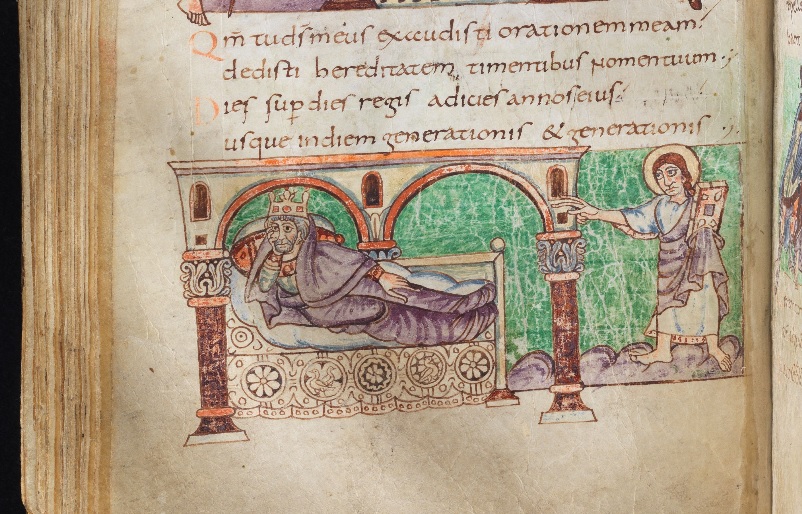 Qm̄ tu d̄s meus exaudisti orationem meam.
dedisti hereditatem timentibus nomen tuum.
Dies sup dies regis adicies annos eius
usque in diem generationis & generationis